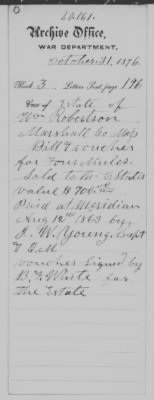 20.161.
Archive Office,
WAR DEPARTMENT,
October 31, 1876.
Book 3 Letters Sent, page 196
Case of Estate of
Wm Robertson
Marshall Co Miss
Bill & voucher
for Four Mules.
Sold to the C States
value $ 700.00
Paid at Meridian
Aug 12th 1863 by
J. W. Young, Capt
&
voucher signed by
B. F. White for
the Estate